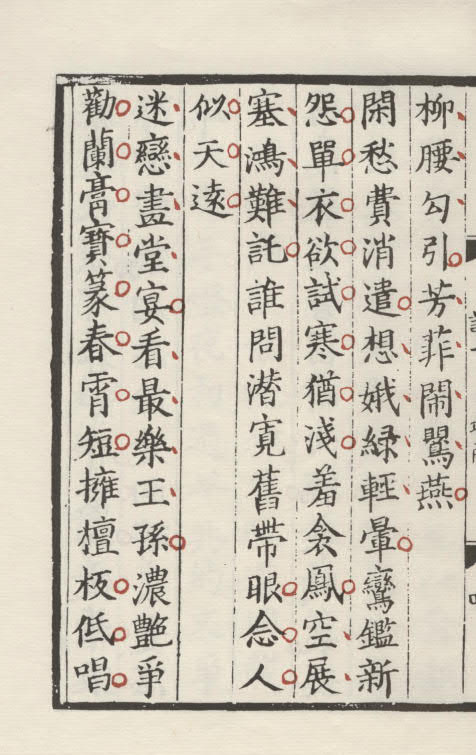 柳腰勾引芳菲閙鸎燕
閑愁費消遣想娥緑輕暈鸞鑑新
怨單衣欲試寒猶淺羞衾鳳空展
塞鴻難託誰問潛寛舊帶眼念人
似天遠
迷戀畫堂宴看最樂王孫濃艷爭
勸蘭膏寶篆春宵短擁檀板低唱